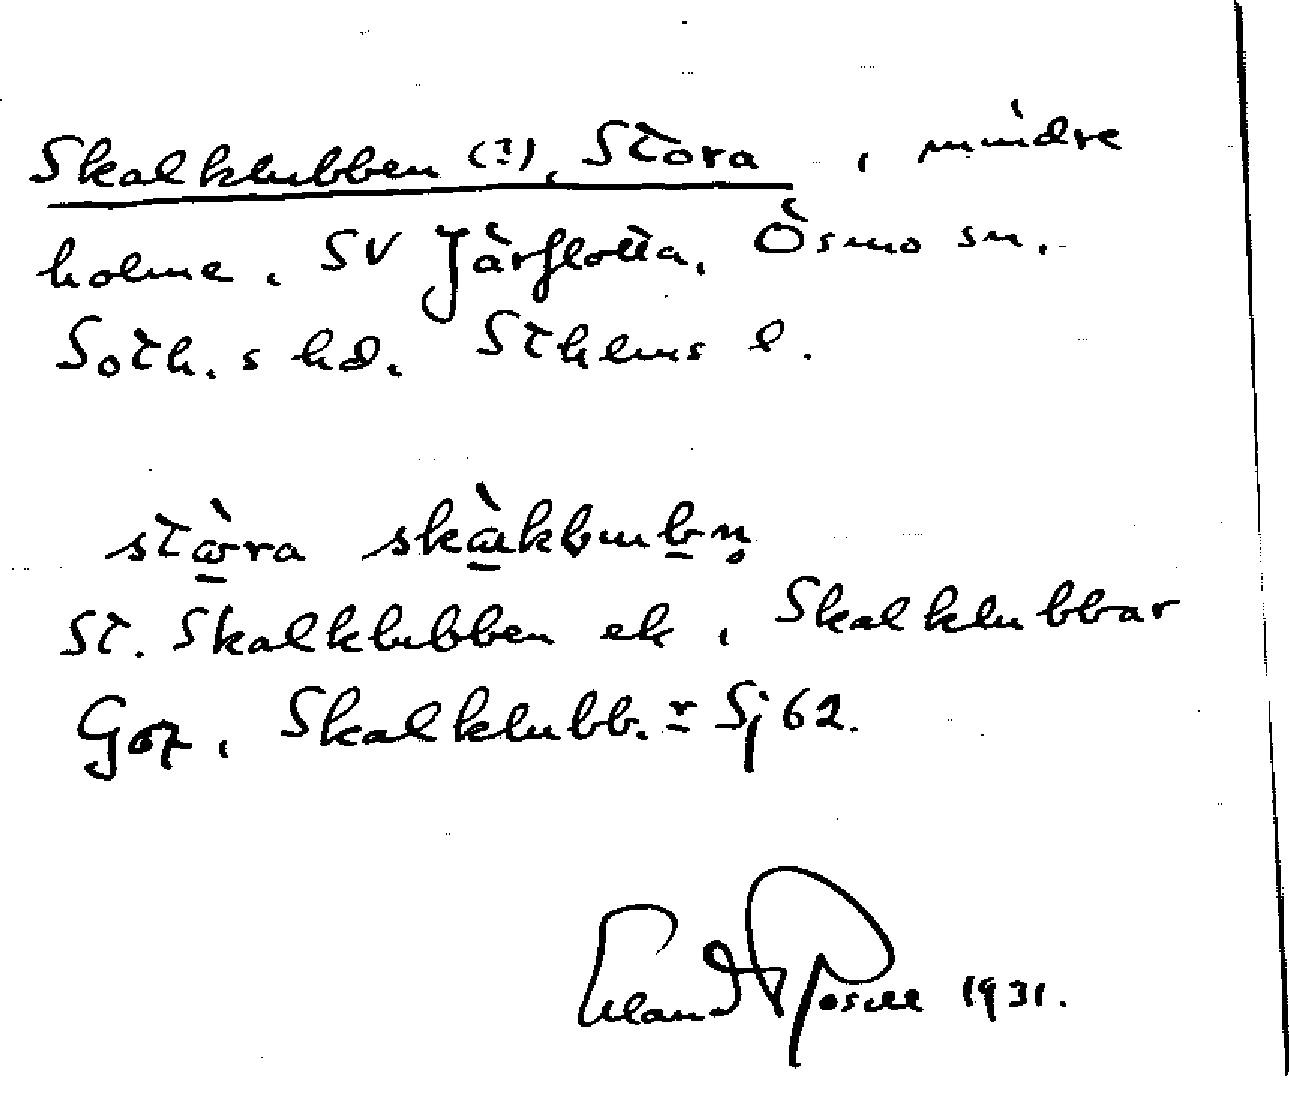 Skalklubben (?), Stora, mindre
holme, SV Järflotta, Ösmo sn,
Soth. s hd. Sthlms l.
stàra
St. Skalklubben ek, Skalklubbar
Gok, Skalklubb. Sj 62.
Erland Rosell 1931.